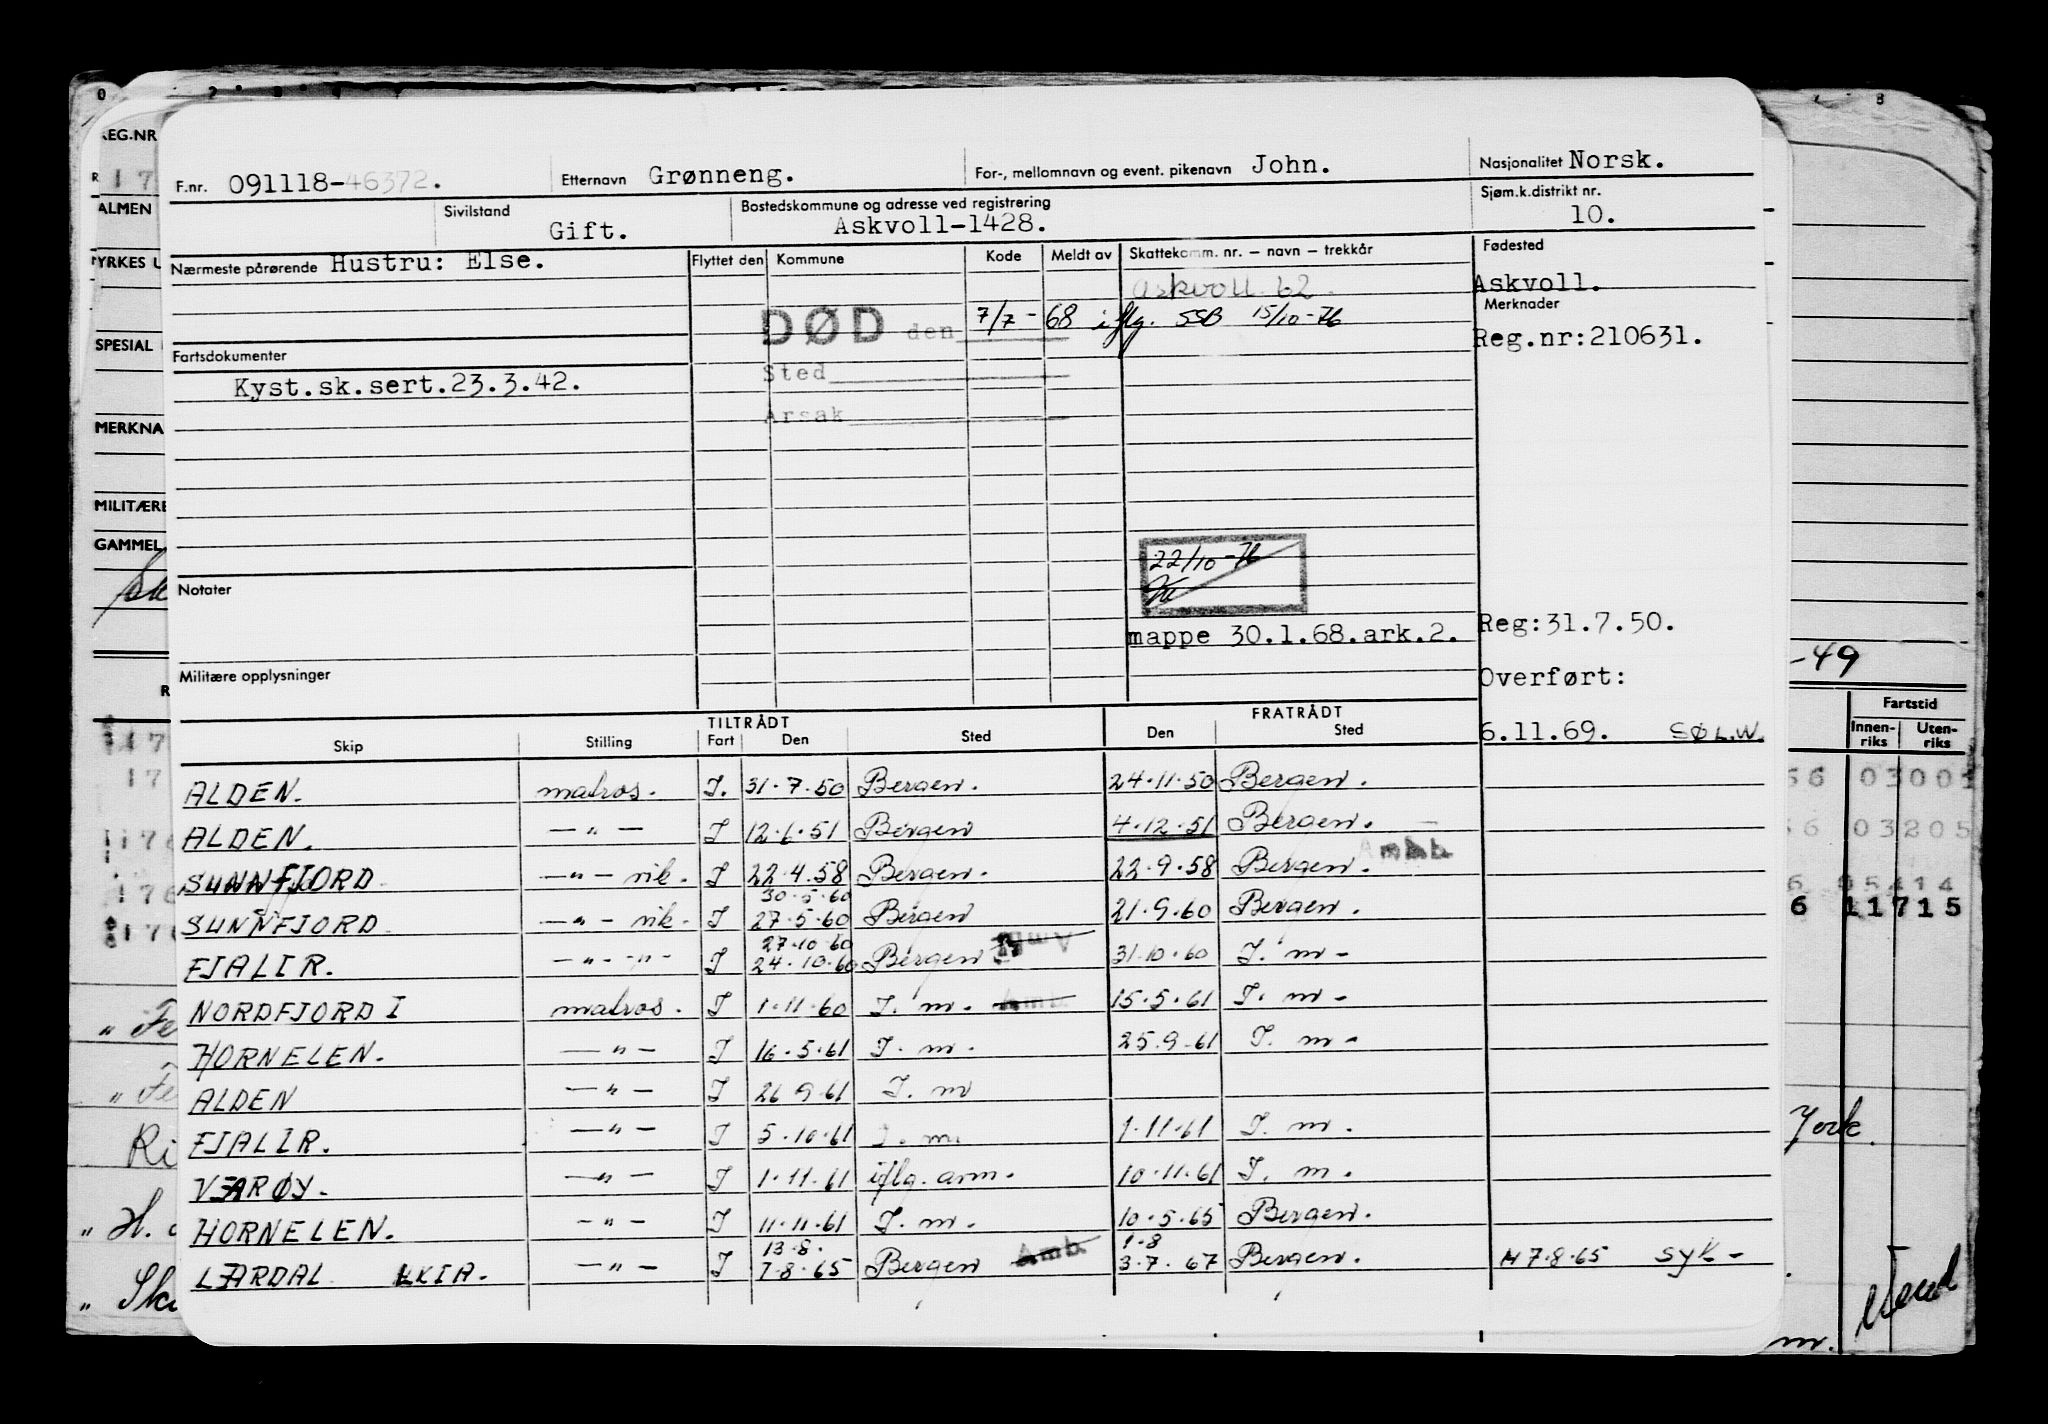 F.nr. 091118-46372. Etternavn Grønneng. For-, mellomnavn og event. pikenavn John. Nasjonalitet Norsk.
Sivilstand Gift. Bostedskommune og adresse ved registrering Askvoll-1428. Sjøm.k.distrikt nr. 10.
Nærmeste pårørende Hustru: Else. Flyttet den Kommune Kode Meldt av Skattekomm. nr. – navn – trekkår Fødested
Askvoll 62. Askvoll.
Merknader
DØD den 7/7-68 iflg. SSB 15/10-76
Reg.nr:210631.
Fartsdokumenter Sted
Kyst.sk.sert.23.3.42.
Årsak
22/10-76
Notater
mappe 30.1.68.ark.2. Reg:31.7.50.
Militære opplysninger Overført:
6.11.69. SØ L.W.
TILTRÅDT FRATRÅDT
Skip Stilling Fart Den Sted Den Sted
ALDEN. matros. I. 31.7.50 Bergen. 24.11.50 Bergen.
ALDEN. —"— I 12.6.51 Bergen 4.12.51 Bergen.
Amb.
SUNNFJORD —"— vik. I 22.4.58 Bergen. 22.9.58 Bergen
30.5.60
SUNNFJORD —"— vik. I 27.5.60 Bergen 21.9.60 Bergen.
27.10.60
FJALIR. —"—"— I 24.10.60 Bergen Amb 31.10.60 I. m-
NORDFJORD I matros. I 1.11.60 I. m. Amb. 15.5.61 I. m-
HORNELEN. —"— I 16.5.61 I. m. 25.9.61 I. m-
ALDEN —"— I 26 9.61 I. m
FJALIR. —"— I 5.10.61 I. m. 1.11.61 I. m.
VÆRØY. —"— I 1.11.61 iflg. arm. 10.11.61 I. m.
HORNELEN. —"— I 11.11.61 I. m. 10.5.65 Bergen.
13.8. 1.8
LÆRDAL LKIA. —"— I 7.8.65 Bergen Amb. 3.7.67 Bergen. 17.8.65 syk-
REG.NR
ALMEN
YRKES U
SPESIAL
MERKNA
MILITÆRE
GAMMEL
-49
Fartstid
Innen-
riks
Uten-
riks
56 03001
56 03205
6 05414
6 11715
York.
m.